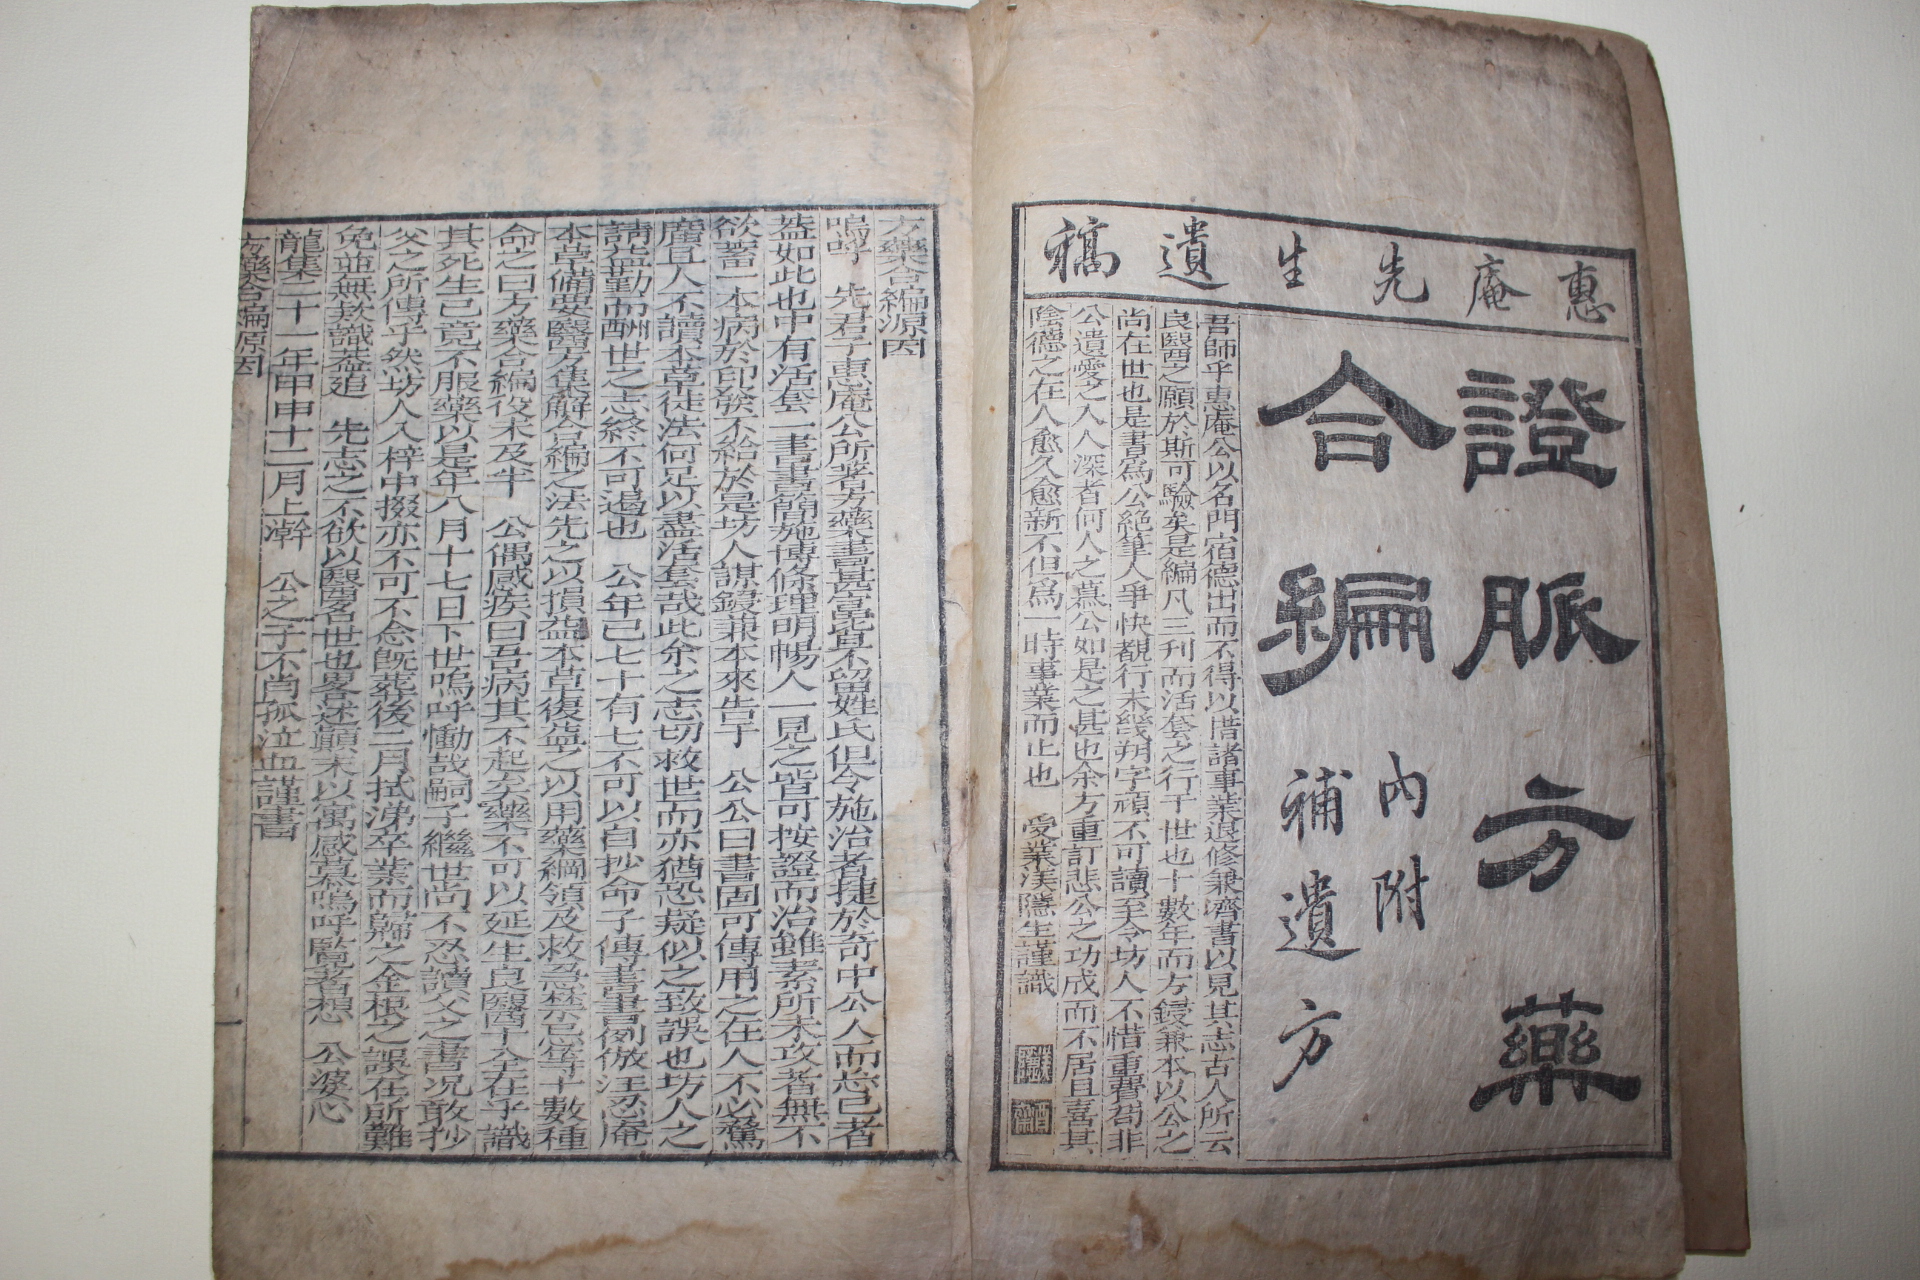 惠庵先生遺稿
證脈方藥
合編
內附
補遺方
吾師乎惠庵公以名門宿德出而不得以借諸事業退修兼濟書以見其志古人所云
良醫之願於斯可驗矣是編凡三刊而活套之行于世也十數年而方鋟兼本以公之
尚在世也是書爲公絶筆人爭快覩行未幾朔字頑不可讀至今坊人不惜重費苟非
公遺愛之入人深者何人之慕公如是之甚也余方重訂悲公之功成而不居且喜其
陰德之在人愈久愈新不但爲一時事業而止也 受業渼隱生謹識
方藥合編源因
嗚呼 先君子惠庵公所著方藥書甚富皆不留姓氏但令施治者捷於奇中公人而忘己者
蓋如此也中有活套一書書簡施博條理明暢人一見之皆可按證而治雖素所未攻者無不
欲蓄一本病於印發不給於是坊人謀鋟兼本來告于 公公曰書固可傳用之在人不必騖
廣且人不讀本草徒法何足以盡活套哉此余之志切救世而亦猶恐疑似之致誤也坊人之
請益勤而酬世之志終不可遏也 公年已七十有七不可以自抄命子傳書書例倣汪忍庵
本草備要醫方集解合編之法先之以損益本草復益之以用藥綱領及救急禁忌等十數種
命之曰方藥合編役未及半 公偶感疾曰吾病其不起矣藥不可以延生良醫十全在乎識
其死生已竟不服藥以是年八月十七日下世嗚呼慟哉嗣子繼世尚不忍讀父之書况敢抄
父之所傳乎然坊人入梓中掇亦不可不念旣葬後二月拭涕卒業而歸之金根之誤在所難
免並無款識蓋追 先志之不欲以醫名世也畧述顚末以寓感慕嗚呼覽者想 公婆心
龍集二十一年甲申十二月上澣 公之子不肖孤泣血謹書
方藥合編源因
一